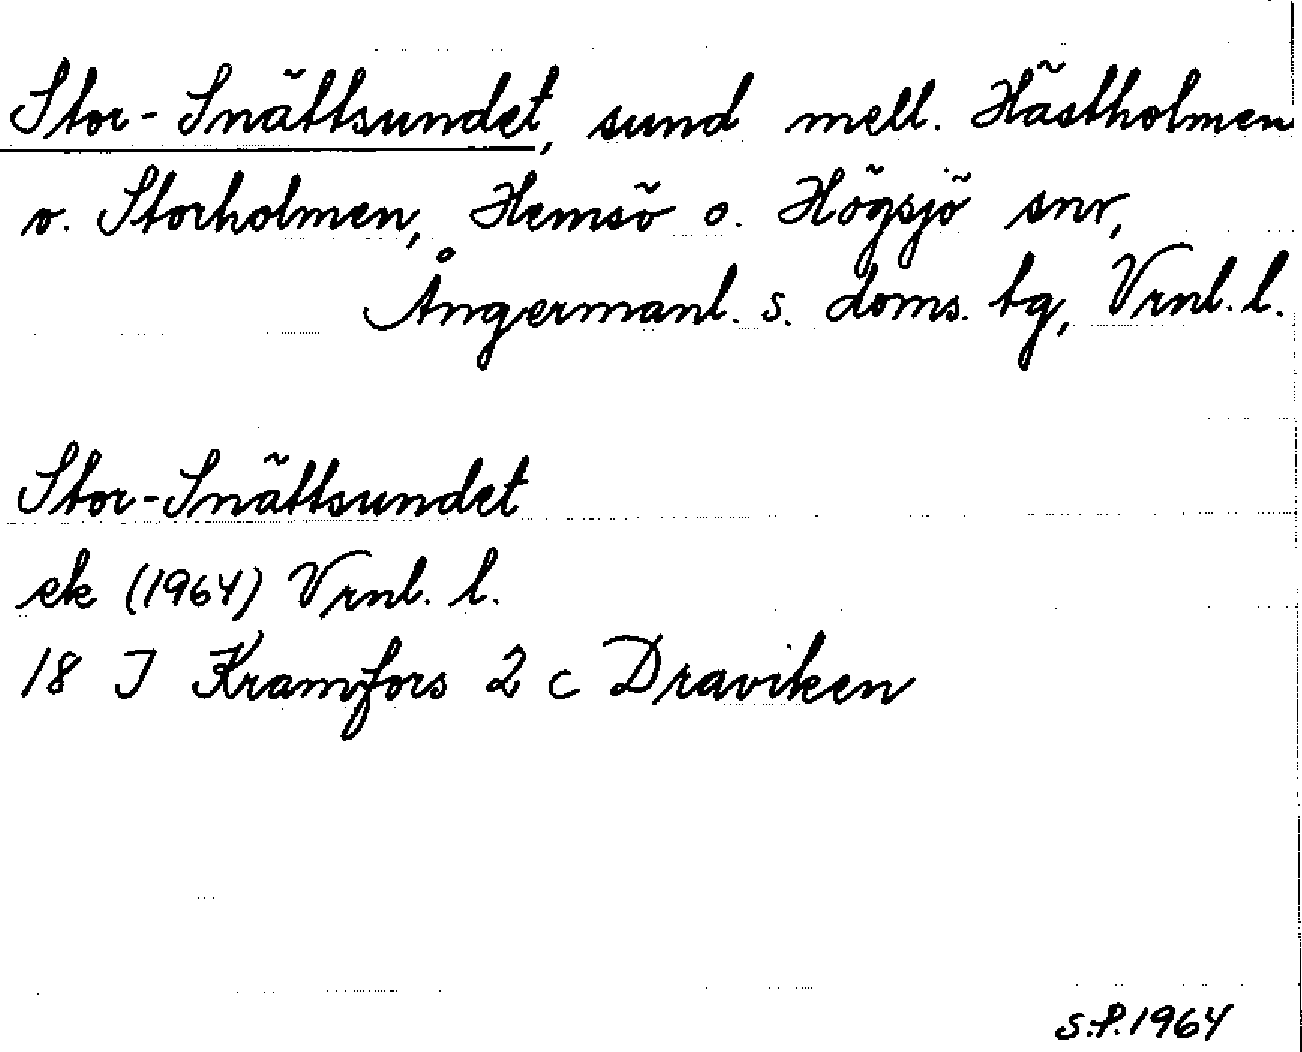 Stor-Snättsundet, sund mell. Hästholmen
o. Storholmen, Hemsö o. Högsjö snr,
Ångermanl. s. doms. tg, Vrnl. l.
Stor-Snättsundet
ek (1964) Vrnl. l.
18 I Kramfors 2 c Draviken
S.P. 1964